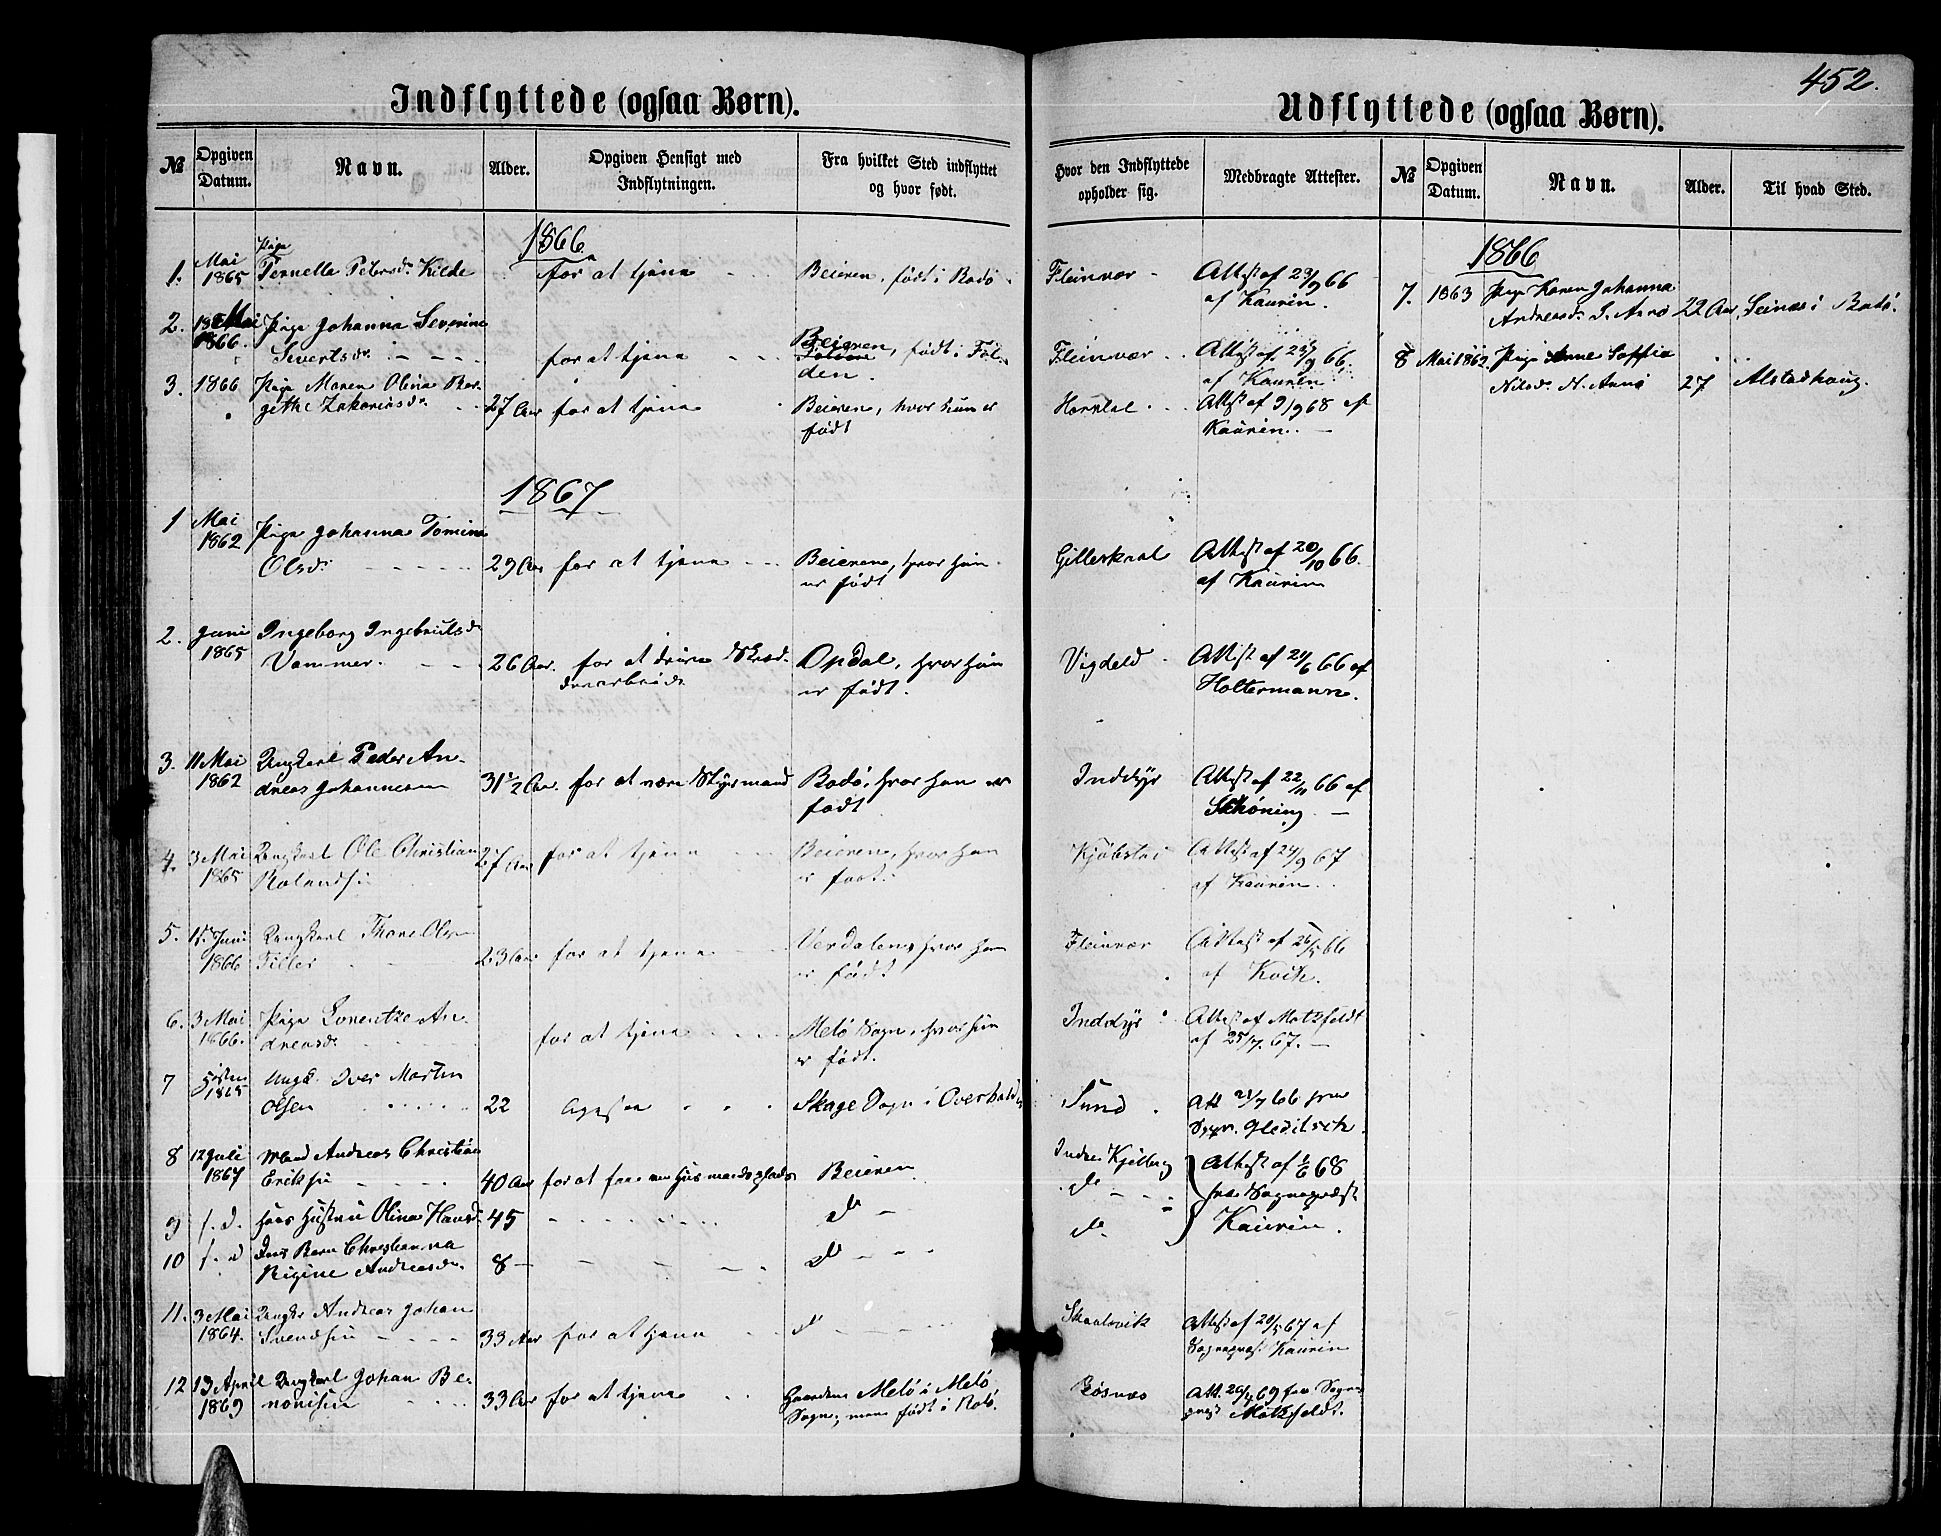 452.
Indflyttede (ogsaa Børn).
Udflyttede (ogsaa Børn).
№
Opgiven Datum.
Navn.
Alder.
Opgiven Hensigt med Indflytningen.
Fra hvilket Sted indflyttet og hvor født.
Hvor den Indflyttede opholder sig.
Medbragte Attester.
№
Opgiven Datum.
Navn.
Alder.
Til hvad Sted.
1866
1. Mai 1865 Pige Pernella Petersd. Kilde for at tjene Beieren, født i Bodø Fleinvær Attest af 23/9 66 af Kaurin.
2. Mai 1866. Pige Johanna Severine
Sivertsd. for at tjene Beieren, født i Folden. Fleinvær Attest af 23/9 66 af Kaurin
3. 1866 Pige Maren Olina Ber-
gethe Zakariasd. 27 Aar for at tjene Beieren, hvor hun er født Attest af 9/9 68 af Kaurin.
1867
1 Mai 1862 Pige Johanna Tomine
Olsd. 29 Aar for at tjene Beieren, hvor hun er født Gilleskaal Attest af 20/10 66. af Kaurin
2. Juni 1865 Ingeborg Ingebrigtsd.
Vammer. 26 Aar. for at drive Opdal, hvor hun er født. Vigdeld Attest af 21/6 66 af Holtermann.
3. 11 Mai 1862 Ungkarl Peder An-
dreas Johannesen 31 1/2 Aar. for at være Styrmand Bodø, hvor han er født Inddyr Attest af 22/11 66 af Schöning.
4. 3 Mai 1865 Ungkarl Ole Christian
Rolandsen 27 Aar for at tjene Beieren, hvor han er født. Kjøbstad Attest af 24/9 67 af Kaurin.
5. 15. Juni 1866 Ungkarl Thore Olsen
Tiller 23 Aar for at tjene Verdalen, hvor han er født Fleinvær Attest af 26/5 66 af Kvik.
6. 3 Mai 1866. Pige Lorentze An-
dreasd. for at tjene Melø Sogn, hvor hun er født. Inddyr Attest af Motzfeldt af 25/7. 67.
7 1865 Ungk. Iver Martin
Olsen 22 Skage Sogn i Overhalden Sund Att 21/7 66 fra Sgpr. Gleditsch.
8 12 Juli 1867 Mand Andreas Christian
Eriksen 40 Aar for at faae en Husmandsplads Beieren Indre Kjelling Attest af 1/6 68
9 s. d. hans Hustru Olina Hansd. 45 do do fra Sognepræst
10 s. d Barn Christianna
Rigine Andreasd. 8 do do Kaurin.
11. 3 Mai 1864. Ungk. Andreas Johan
Svendsen 33 Aar for at tjene do Skaalsvik Attest af 20/5 67 af Sognepræst Kaurin
12 13 April 1869 Ungkarl Johan Be-
nonisen 33 Aar for at tjene Gaarden Melø i Melø Sogn, men født i Rødø. Røsnæs Att. 20/4 69 fra Sogne- præst Motzfeldt.
1866
7. 1863 Pige Karen Johanna
Andreasd. S. Arnø 22 Aar, Seines i Bodø.
8 Mai 1862. Pige Anne Soffie
Nilsd. N. Arnø 27 Alstadhaug.